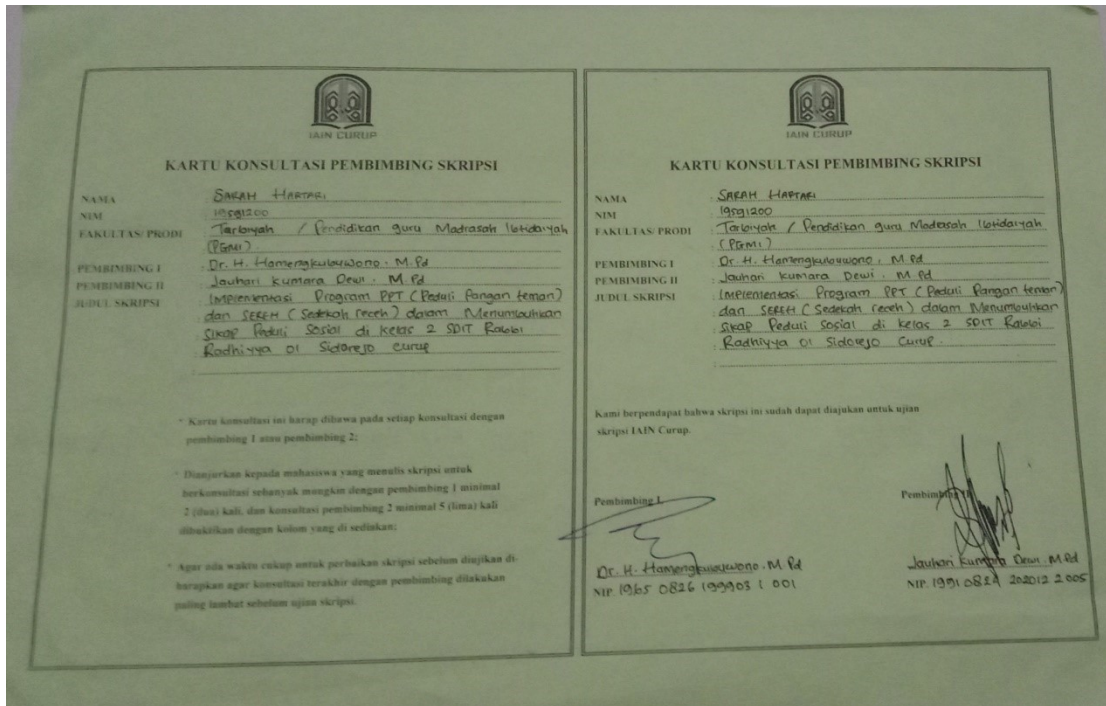 IAIN CURUP
KARTU KONSULTASI PEMBIMBING SKRIPSI
NAMA : SARAH HARTARI
NIM : 19591200
FAKULTAS/ PRODI : Tarbiyah / Pendidikan guru Madrasah Ibtidaiyah
(PGMI)
PEMBIMBING I : Dr. H. Hamengkubuwono. M.Pd
PEMBIMBING II : Jauhari Kumara Dewi. M.Pd
JUDUL SKRIPSI : Implementasi Program PPT (Peduli Pangan teman)
dan SEREH (Sedekah receh) dalam Menumbuhkan
Sikap Peduli Sosial di Kelas 2 SDIT Rabbi
Radhiyya 01 Sidorejo Curup
* Kartu konsultasi ini harap dibawa pada setiap konsultasi dengan
pembimbing 1 atau pembimbing 2;
* Dianjurkan kepada mahasiswa yang menulis skripsi untuk
berkonsultasi sebanyak mungkin dengan pembimbing 1 minimal
2 (dua) kali, dan konsultasi pembimbing 2 minimal 5 (lima) kali
dibuktikan dengan kolom yang di sediakan;
* Agar ada waktu cukup untuk perbaikan skripsi sebelum diujikan di-
harapkan agar konsultasi terakhir dengan pembimbing dilakukan
paling lambat sebelum ujian skripsi.
IAIN CURUP
KARTU KONSULTASI PEMBIMBING SKRIPSI
NAMA : SARAH HARTARI
NIM : 19591200
FAKULTAS/ PRODI : Tarbiyah / Pendidikan guru Madrasah Ibtidaiyah
(PGMI)
PEMBIMBING I : Dr. H. Hamengkubuwono, M.Pd
PEMBIMBING II : Jauhari Kumara Dewi. M.Pd
JUDUL SKRIPSI : Implementasi Program PPT (Peduli Pangan teman)
dan SEREH (Sedekah receh) dalam Menumbuhkan
Sikap Peduli Sosial di Kelas 2 SDIT Rabbi
Radhiyya 01 Sidorejo Curup.
Kami berpendapat bahwa skripsi ini sudah dapat diajukan untuk ujian
skripsi IAIN Curup.
Pembimbing I, Pembimbing II,
Dr. H. Hamengkubuwono. M.Pd Jauhari Kumara Dewi. M.Pd
NIP. 1965 0826 199903 1 001 NIP. 1991 0824 202012 2 005